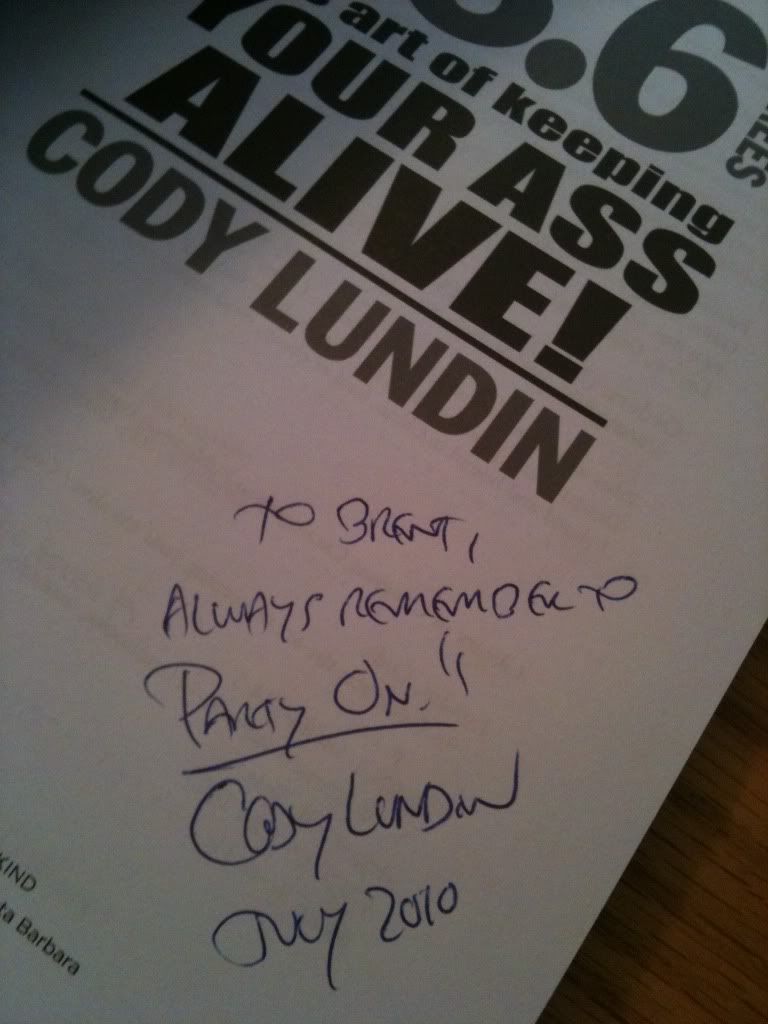 8.6
REES
art of keeping
YOUR ASS
ALIVE!
CODY LUNDIN
TO BRENT,
ALWAYS REMEMBER TO
PARTY ON."
CODY LUNDIN
JULY 2010
KIND
ta Barbara